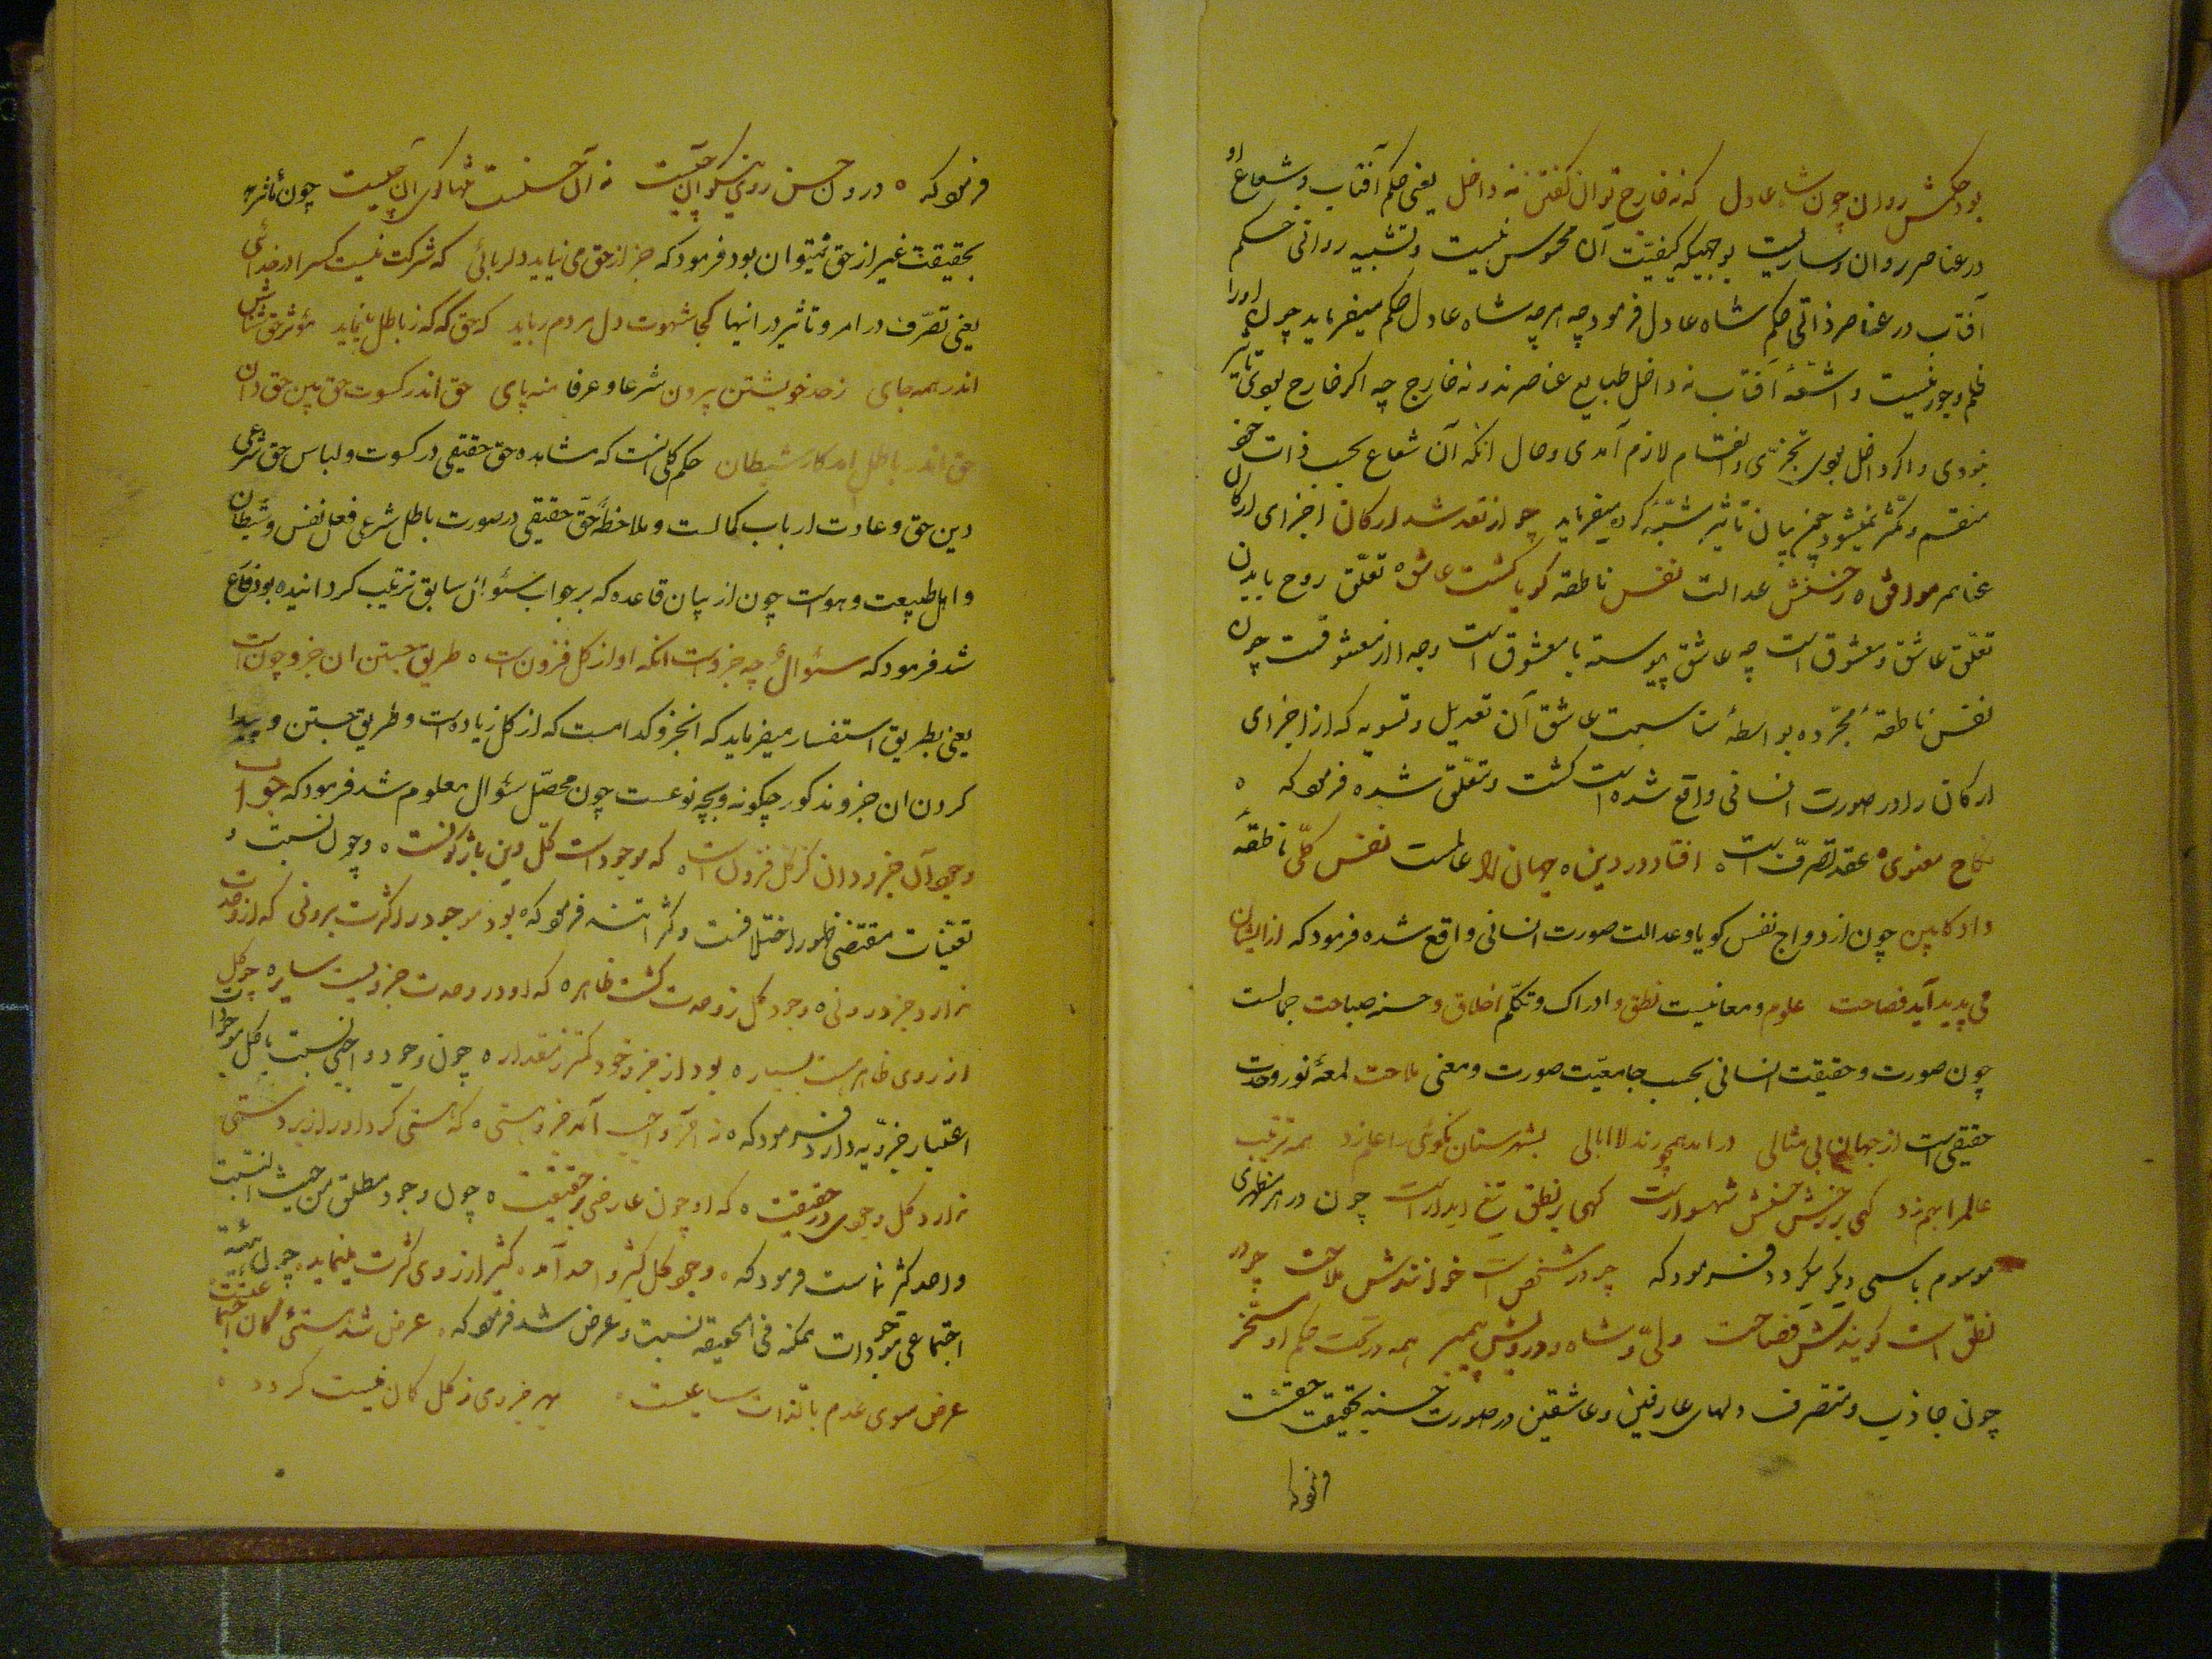 بود حکمش روان چون شاه عادل که نه خارج توان گفتن نه داخل یعنی حکم آفتاب و شعاع او
در عناصر روان و ساریست بوجهیکه کیفیّت آن محسوس نیست و تشبیه روانی حکم
آفتاب در عناصر ذاتی حکم شاه عادل فرمود چه هرچه شاه عادل حکم میفرماید چون او را
ظلم و جور نیست و اشعّهٔ آفتاب نه داخل طبایع عناصرند و نه خارج چه اکر خارج بودی تاثیر
نبودی و اکر داخل بودی تجزّی و انقسام لازم آمدی و حال آنکه آن شعاع بحسب ذات خود
منقسم و متکثر نمیشود بیان تأثیر میفرماید چو از تعدیل شد ارکان اجزای ارکان
عناصر موافق ز حسنش عدالت نفس ناطقه کویا کشت عاشق تعلّق روح بابدن
تعلّق عاشق و معشوق است چه عاشق پیوسته با معشوق است و جدا از معشوق نیست چون
نفس ناطقهٔ مجرّده بواسطهٔ مناسبت عاشق آن تعدیل و تسویه که از اجزای
ارکان را در صورت انسانی واقع شده است کشت و متعلّق شده فرمود که
نکاح معنوی عقد تصرّف است افتاد در دین جهان را عالمست نفس کلّی ناطقه
داد کابین چون ازدواج نفس کویا و عدالت صورت انسانی واقع شده فرمود که از ایشان
می پدید آید فصاحت علوم و معانیست نطق و ادراک و تکلّم اخلاق و حسنه صباحت جمالست
چون صورت و حقیقت انسانی بحسب جامعیّت صورت و معنی ملاحت لمعهٔ نور وحدت
حقیقی است از جهان بی مثالی درامد همچو رند لاابالی بشهرستان نکوئی را علم زد همه ترتیب
عالم را بهم زد کهی بر رخش حسنش شهسوارست کهی بر نطق تیغ آبدارست چون در هر مظهری
موسوم باسمی دیکر میکردد فرمود که چو در شخص است خوانندش ملاحت چو در
نطق است کویندش فصاحت ولیّ و شاه و درویش پیمبر همه در تحت حکم او مسخّر
چون جاذب و متصرف دلهای عارفین و عاشقین در صورت حسنه بحقیقت حقست
فرمود که درون حسن روی نیکوان چیست نه آن حسنست تنها کوی آن چیست چون تأثیر
بحقیقت غیر از حق نمیتوان بود فرمود که جز از حق می نیاید دلربائی که شرکت نیست کس را در خدائی
یعنی تصرّف در امر و تأثیر در اینها کجا شهوت دل مردم رباید که حق که که ز باطل مینماید مؤثر حق شناس
اندر همه جای ز حد خویشتن بیرون شرعا و عرفا منه پای حق اندر کسوت حق بین حق دان
حق اندر باطل امد کار شیطان حکم کلی است که مشاهده حق حقیقی در کسوت و لباس حق شرعی
دین حق و عادت ارباب کمالست و ملاحظهٔ حق حقیقی در صورت باطل شرعی فعل نفس و شیطان
و اهل طبیعت و هواست چون از بیان قاعده که بر جواب سئوال سابق ترتیب کردانیده بود فارغ
شد فرمود که سئوال چه جزوست آنکه او از کل فزون است طریق جستن ان جزو چون است
یعنی بطریق استفسار میفرماید که آنجزو کدامست که از کل زیاده است و طریق جستن و پیدا
کردن ان جزو مذکور چکونه و بچه نوعست چون محصّل سئوال معلوم شد فرمود که جواب
وجود آن جزو دان کز کل فزون است که موجودات کل وین باژکونست و چون نسبت و
تعیّنات مقتضی ظهور اختلافست و کثرات فرمود که بود موجود را کثرت برونی که از وحدت
ندارد جز درونی وجود کل ز وحدت کشت ظاهر که او در وحدت جزویست سایر چو کل
از روی ظاهر هست بسیار بود از جزو خود کمتر ز مقدار چون وجود واجبی نسبت با کل موجودات
اعتبار جزویه دارد فرمود که نه آخر واجب آمد جزو هستی که هستی کرد او را زیردستی
ندارد کل وجودی در حقیقت که او چون عارضی بر حقیقت چون وجود مطلق من حیث النسبت
واحد کثیر نماست فرمود که وجود کل کثیر واحد آمد کثیر از روی کثرت مینماید چون هیئت
اجتماعی موجودات ممکنه فی الحقیقه نسبت و عرض شد فرمود که عرض شد هستئ کان اجتماعیست
عرض سوی عدم بالذات ساعیست بهر جزوی ز کل کان نیست کردد